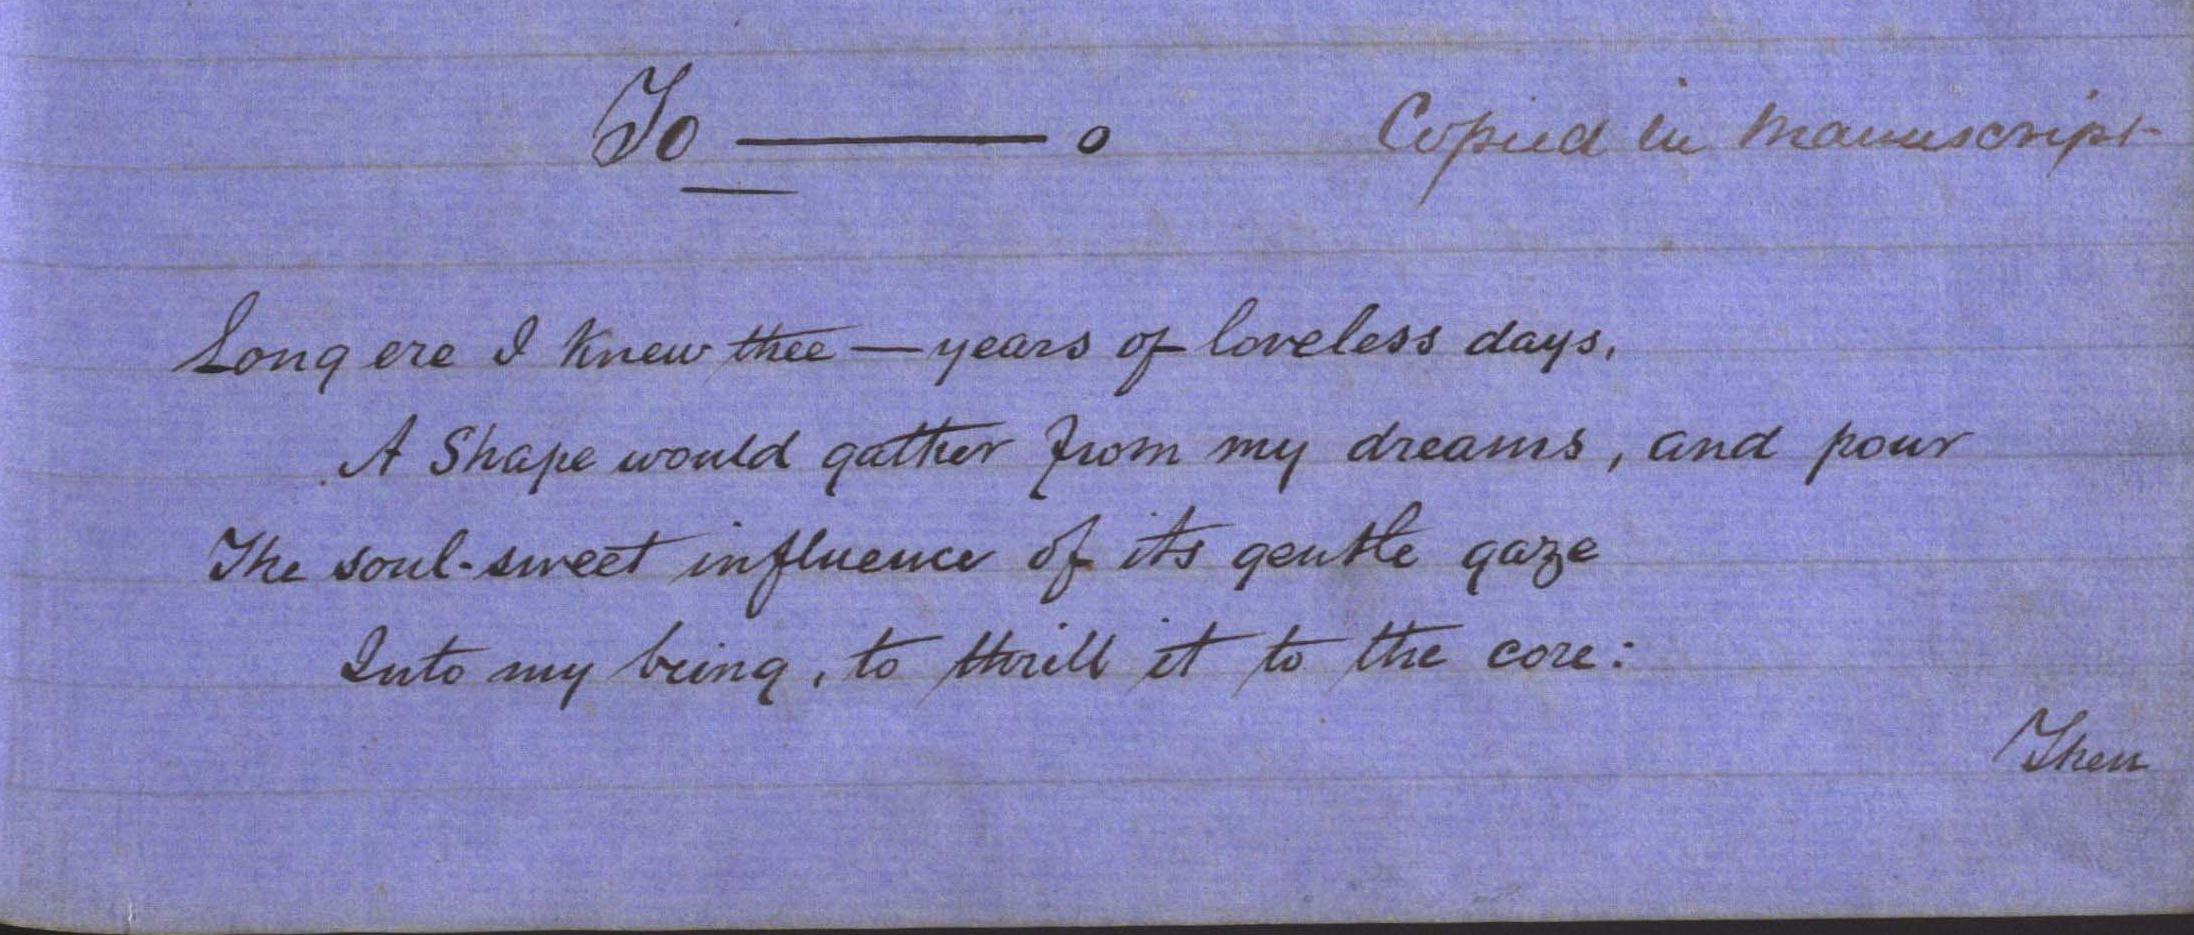 To ——— o Copied in Manuscript
Long ere I knew thee — years of loveless days,
A Shape would gather from my dreams, and pour
The soul-sweet influence of its gentle gaze
Into my being, to thrill it to the core:
Then